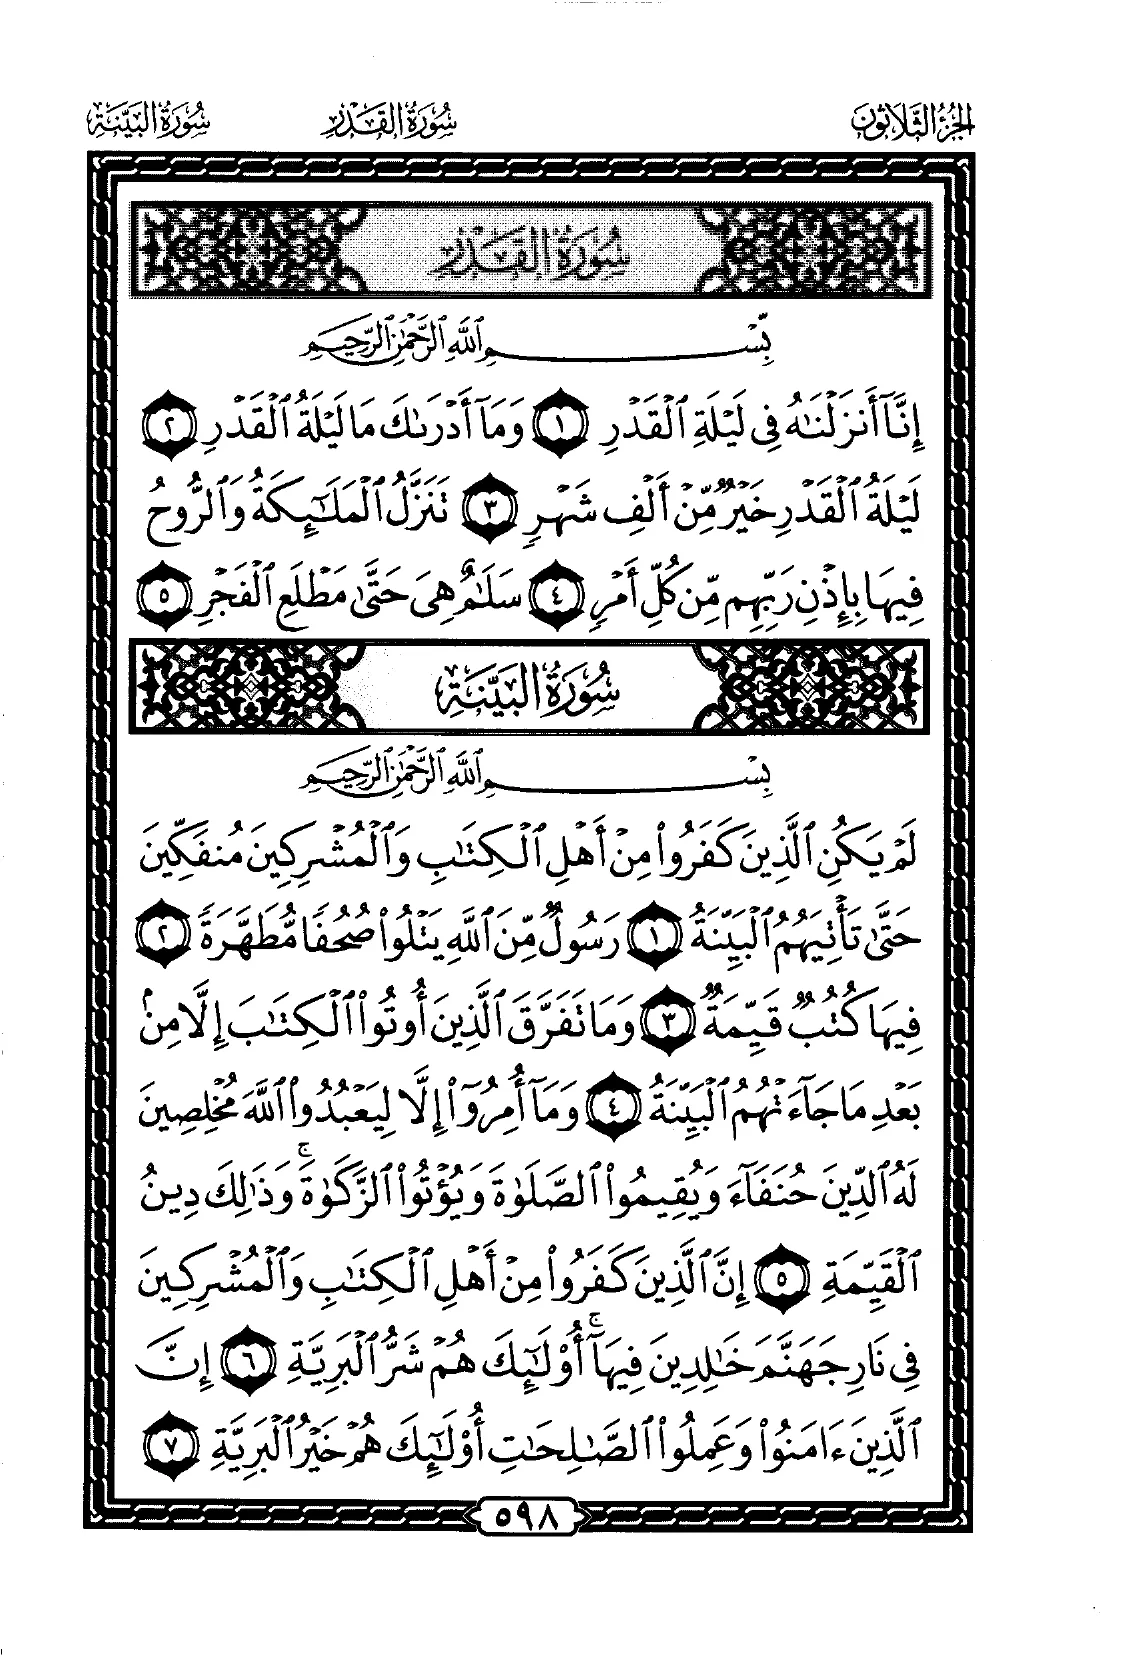 الجزء الثلاثون سورة القدر سورة البينة
سورة القدر
بِّسْمِ ٱللَّهِ ٱلرَّحْمَٰنِ ٱلرَّحِيمِ
إِنَّآ أَنزَلْنَٰهُ فِى لَيْلَةِ ٱلْقَدْرِ ١ وَمَآ أَدْرَىٰكَ مَا لَيْلَةُ ٱلْقَدْرِ ٢
لَيْلَةُ ٱلْقَدْرِ خَيْرٌ مِّنْ أَلْفِ شَهْرٍ ٣ تَنَزَّلُ ٱلْمَلَٰٓئِكَةُ وَٱلرُّوحُ
فِيهَا بِإِذْنِ رَبِّهِم مِّن كُلِّ أَمْرٍ ٤ سَلَٰمٌ هِىَ حَتَّىٰ مَطْلَعِ ٱلْفَجْرِ ٥
سورة البينة
بِسْمِ ٱللَّهِ ٱلرَّحْمَٰنِ ٱلرَّحِيمِ
لَمْ يَكُنِ ٱلَّذِينَ كَفَرُوا۟ مِنْ أَهْلِ ٱلْكِتَٰبِ وَٱلْمُشْرِكِينَ مُنفَكِّينَ
حَتَّىٰ تَأْتِيَهُمُ ٱلْبَيِّنَةُ ١ رَسُولٌ مِّنَ ٱللَّهِ يَتْلُوا۟ صُحُفًا مُّطَهَّرَةً ٢
فِيهَا كُتُبٌ قَيِّمَةٌ ٣ وَمَا تَفَرَّقَ ٱلَّذِينَ أُوتُوا۟ ٱلْكِتَٰبَ إِلَّا مِنۢ
بَعْدِ مَا جَآءَتْهُمُ ٱلْبَيِّنَةُ ٤ وَمَآ أُمِرُوٓا۟ إِلَّا لِيَعْبُدُوا۟ ٱللَّهَ مُخْلِصِينَ
لَهُ ٱلدِّينَ حُنَفَآءَ وَيُقِيمُوا۟ ٱلصَّلَوٰةَ وَيُؤْتُوا۟ ٱلزَّكَوٰةَ ۚ وَذَٰلِكَ دِينُ
ٱلْقَيِّمَةِ ٥ إِنَّ ٱلَّذِينَ كَفَرُوا۟ مِنْ أَهْلِ ٱلْكِتَٰبِ وَٱلْمُشْرِكِينَ
فِى نَارِ جَهَنَّمَ خَٰلِدِينَ فِيهَآ ۚ أُو۟لَٰٓئِكَ هُمْ شَرُّ ٱلْبَرِيَّةِ ٦ إِنَّ
ٱلَّذِينَ ءَامَنُوا۟ وَعَمِلُوا۟ ٱلصَّٰلِحَٰتِ أُو۟لَٰٓئِكَ هُمْ خَيْرُ ٱلْبَرِيَّةِ ٧
٥٩٨